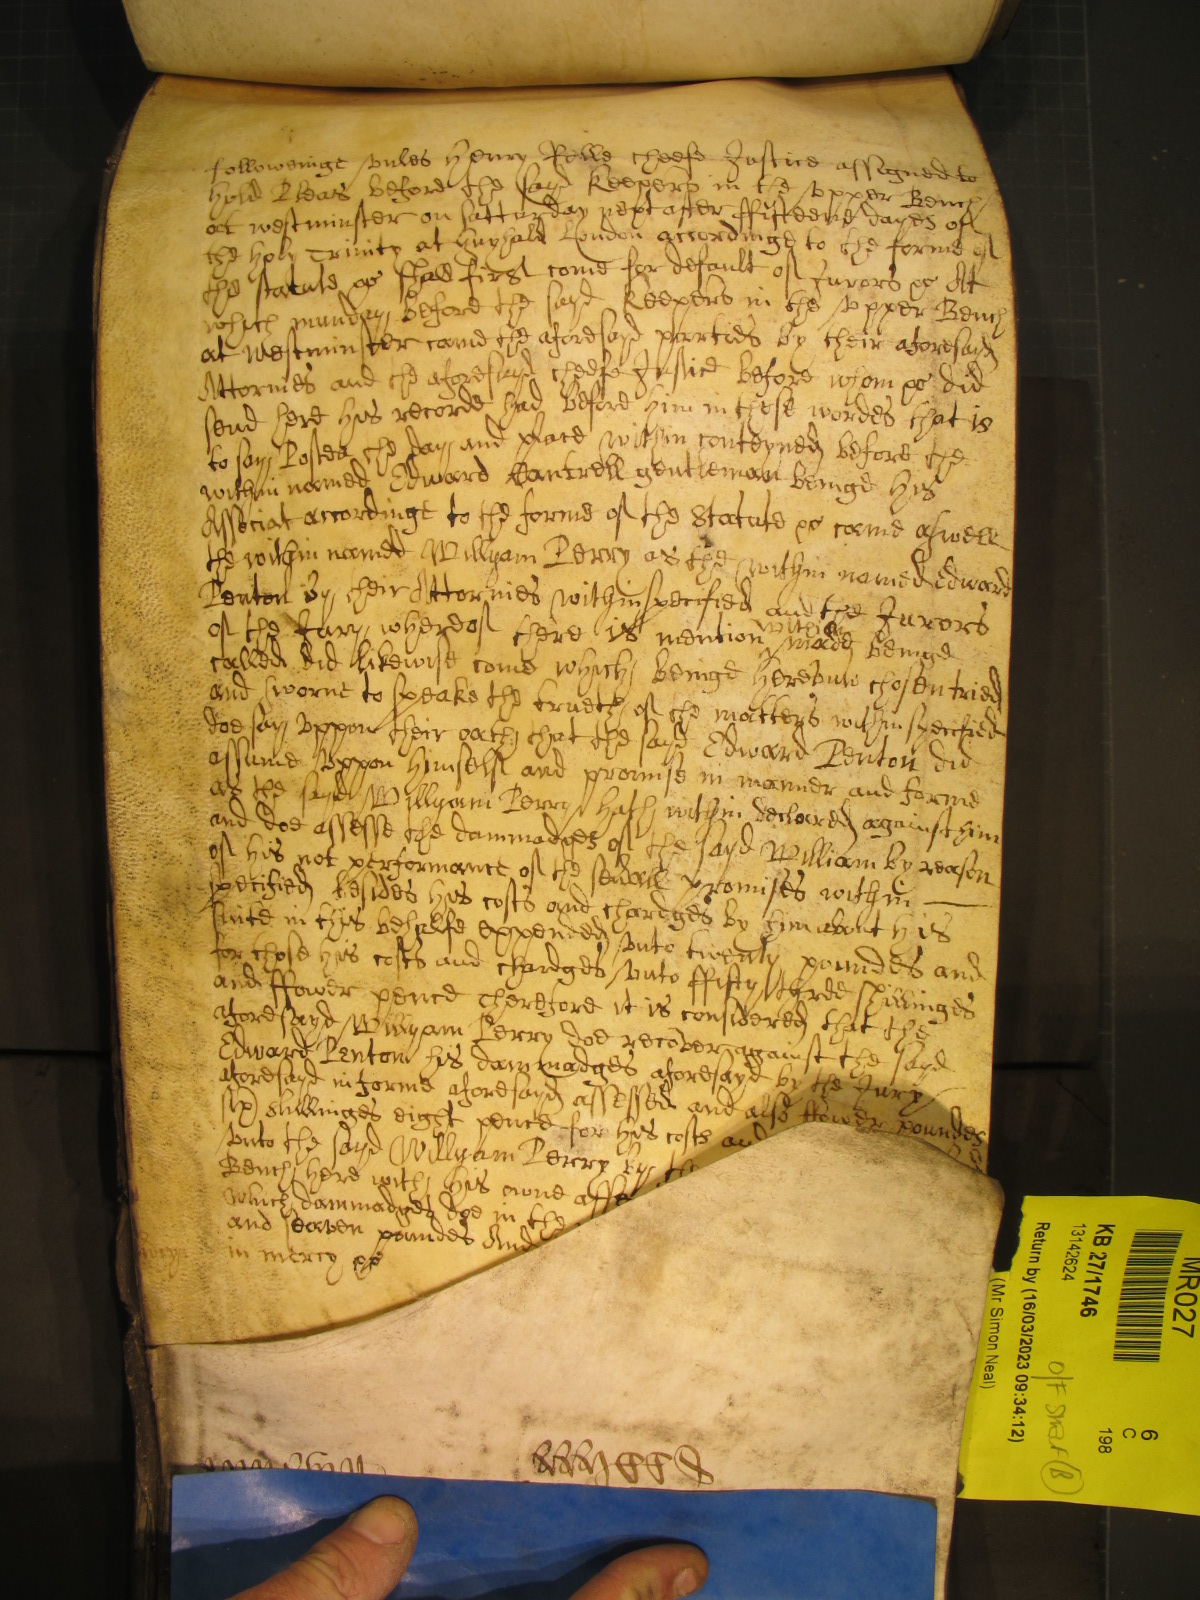 followeinge unles Henry Rolle cheefe Justice assigned to
hold Pleas before the sayd Keepers in the Upper Bench
at westminster on Satturday next after ffifteene dayes of
the holy Trinity at Guyhald London accordinge to the forme of
the statute &c shall first come for default of Jurors &c At
which munday before the sayd Keepers in the Upper Bench
at Westminster came the aforesayd parties by their aforesayd
Attornies and the aforesayd cheefe Justice before whom &c did
send here his recorde had before him in these wordes that is
to say Postea the day and place within conteyned before the
within named Edward Cantrell gentleman beinge his
Associat accordinge to the forme of the Statute &c came aswell
the within named Willyam Perry as the within named Edward
Penton by their Attornies within specified and the Jurors
of the Jury whereof there is mention within made beinge
called did likewise come which beinge hereunto chosen tried
and sworne to speake the trueth of the matters within specified
doe say uppon their oath that the sayd Edward Penton did
assume uppon himself and promise in manner and forme
as the sayd Willyam Perry hath within declared against him
and doe assesse the dammadges of the sayd William by reason
of his not performance of the severall promises within
specified besides his costs and chardges by him about his
suite in this behalfe expended unto twenty poundes and
for those his costs and chardges unto ffifty three shillinges
and ffower pence therefore it is considered that the
aforesayd Willyam Perry doe recover against the sayd
Edward Penton his dammadges aforesayd by the Jury
aforesayd in forme aforesayd assessed and also ffower poundes
six shillinges eight pence for his costs and
unto the sayd Willyam Perry by the
Bench here with his owne asse
which dammadges doe in the
and seaven poundes And
in mercy &c
MR027
KB 27/1746
13142624
Return by (16/03/2023 09:34:12)
(Mr Simon Neal)
6
C
198